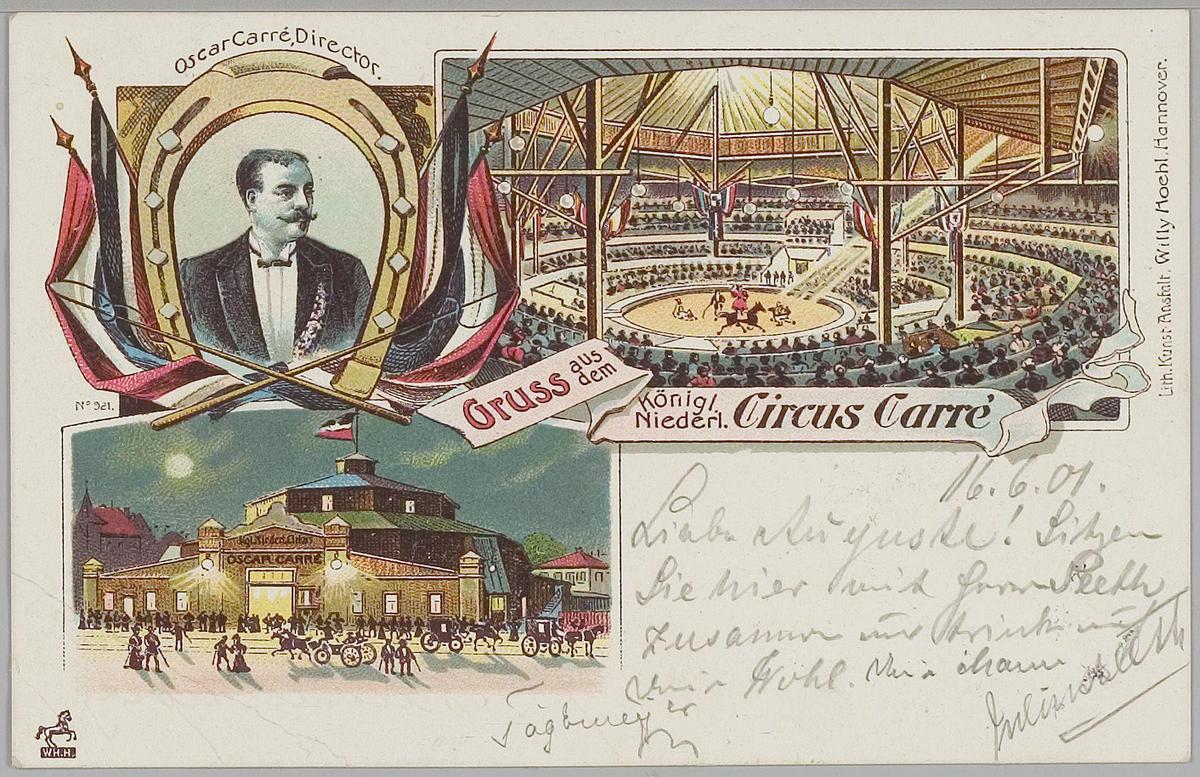 Oscar Carré, Director.
Gruss aus dem
Königl. Niederl. Circus Carré
Lith. Kunst-Anstalt. Willy Hoehl. Hannover.
No 921.
Kgl. Niederl. Circus
OSCAR CARRÉ
16.6.01.
Liebe Auguste! Sitzen
Sie hier mit Herrn
zusammen und trinken auf
Ihr Wohl.
W.H.H.